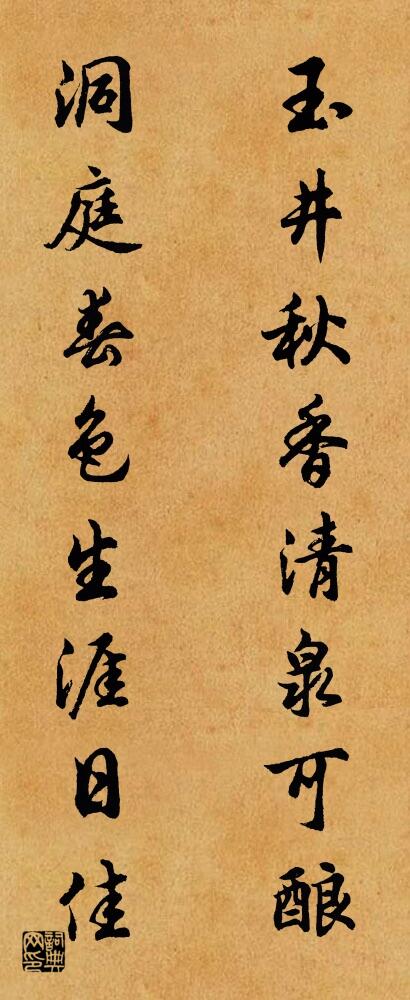 玉井秋香清泉可酿
洞庭春色生涯日佳
詞典网印